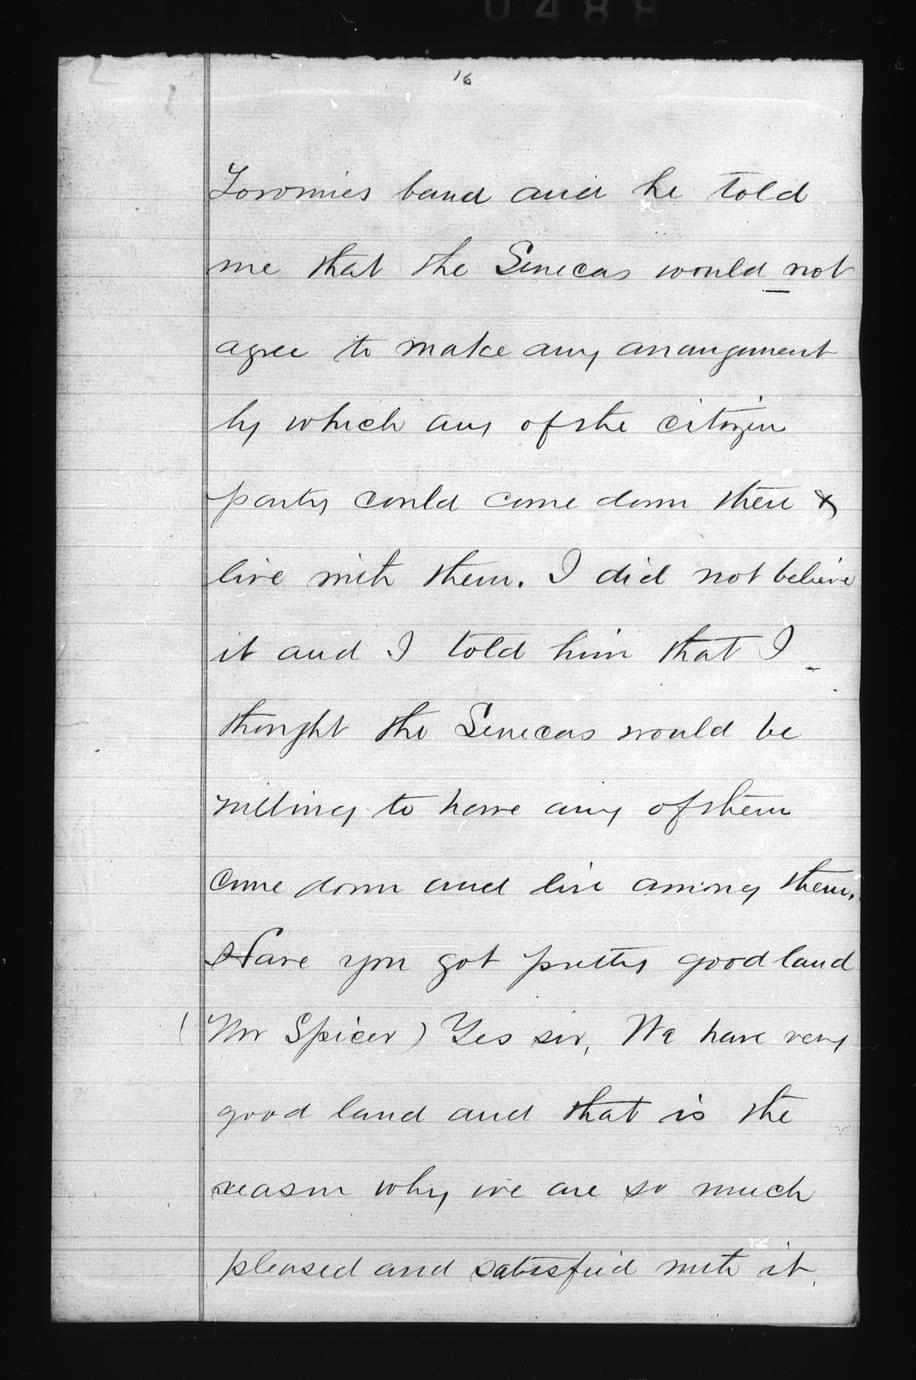 0488
16
band and he told
me that the Senecas would not
agree to make any arangement
by which any of the citizen
party could come down there &
live with them. I did not believe
it and I told him that I
thought the Senecas would be
willing to have any of them
come down and live among them.
Have you got pretty good land
(Mr Spicer) Yes sir, We have very
good land and that is the
reason why we are so much
pleased and satisfied with it.